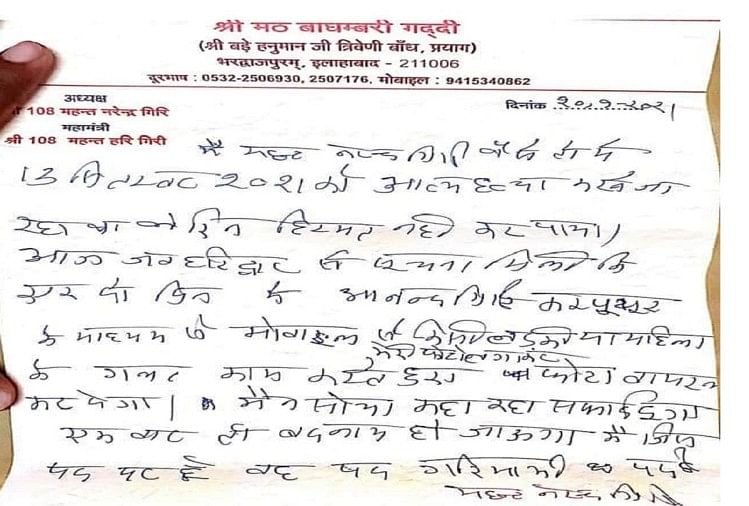 श्री मठ बाघम्बरी गद्दी
(श्री बड़े हनुमान जी त्रिवेणी बाँध, प्रयाग)
भरद्वाजपुरम्, इलाहाबाद - 211006
दूरभाष : 0532-2506930, 2507176, मोबाइल : 9415340862
अध्यक्ष
108 महन्त नरेन्द्र गिरि
महामंत्री
श्री 108 महन्त हरि गिरी
दिनांक
मै महन्त नरेन्द्र गिरि वैसे तो मै
13 सितम्बर 2021 को आत्म हत्या करने जा
रहा था लेकिन हिम्मत नही कर पाया।
आज जब हरिद्वार से सूचना मिली कि
एक दो दिन मे आनन्द गिरि कम्प्यूटर
के माध्यम से मोबाइल से किसी लड़की या महिला
मेरी फोटो लगाकर
के गलत काम करते हुए फोटो वायरल
कर देगा। मैने सोचा कहा तक सफाई दूंगा
एक बार तो बदनाम हो जाऊगा मै जिस
पद पर हूँ वह पद गरिमामयी पद है
महन्त नरेन्द्र गिरि